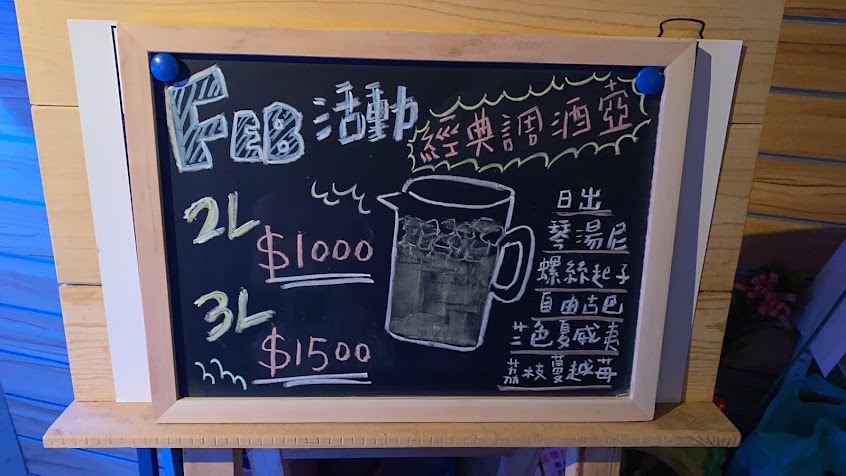 FEB 活動
經典調酒壺
2L
$1000
3L
$1500
日出
琴湯尼
螺絲起子
自由古巴
芒色夏威夷
荔枝蔓越莓